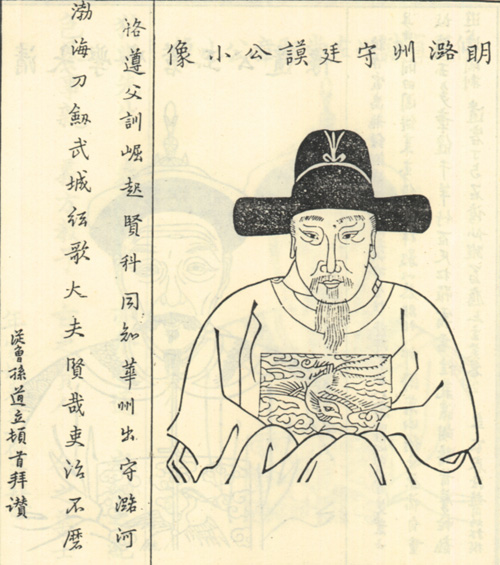 明潞州守廷謨公小像
恪遵父訓崛起賢科同知華州出守潞河
渤海刀劔武城絃歌大夫賢哉吏治不磨
從曾孫道立頓首拜讚